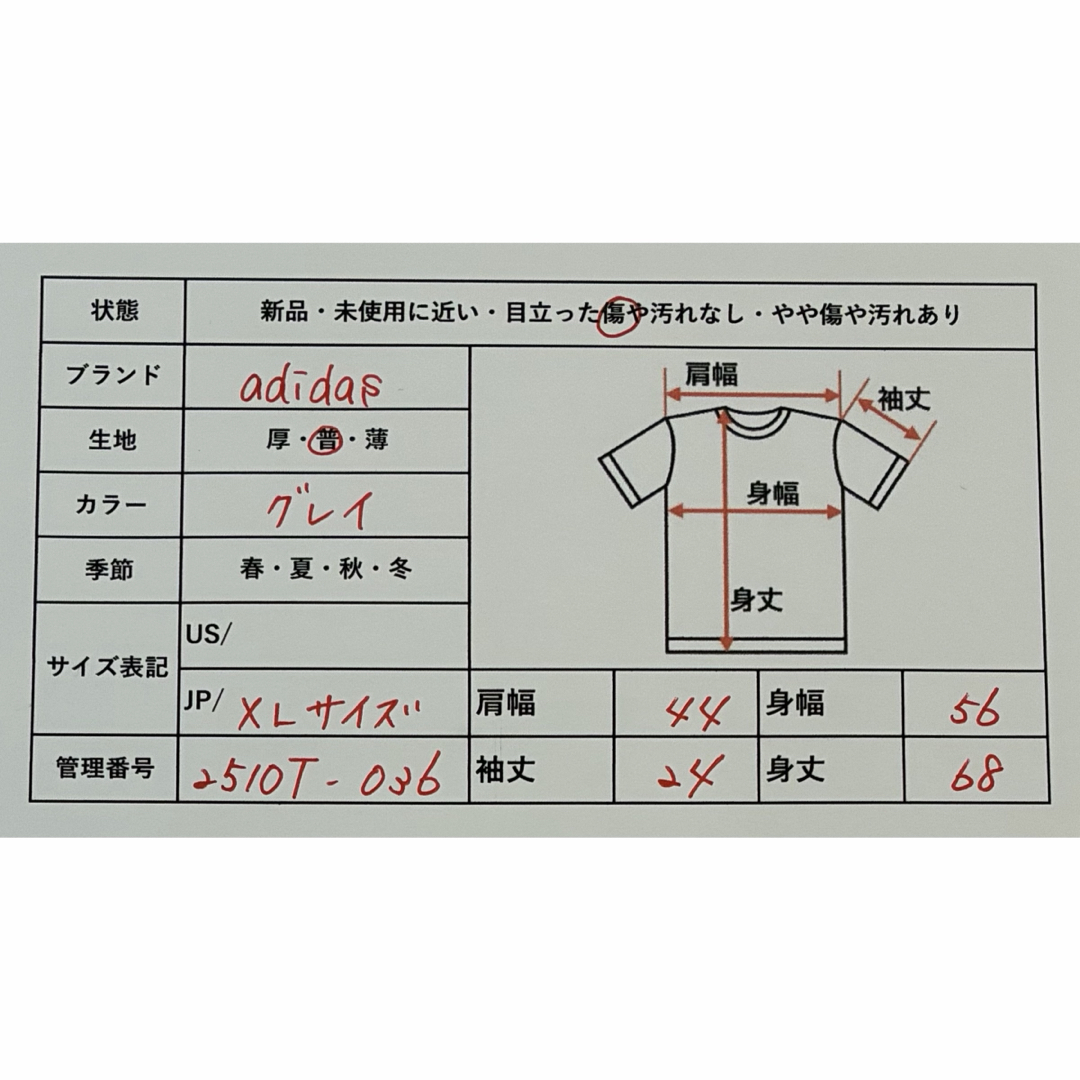 状態 新品・未使用に近い・目立った傷や汚れなし・やや傷や汚れあり
ブランド adidas
生地 厚・普・薄
カラー グレイ
季節 春・夏・秋・冬
サイズ表記 US/
JP/ XLサイズ
管理番号 2510T-036
肩幅
袖丈
身幅
身丈
肩幅 44 身幅 56
袖丈 24 身丈 68